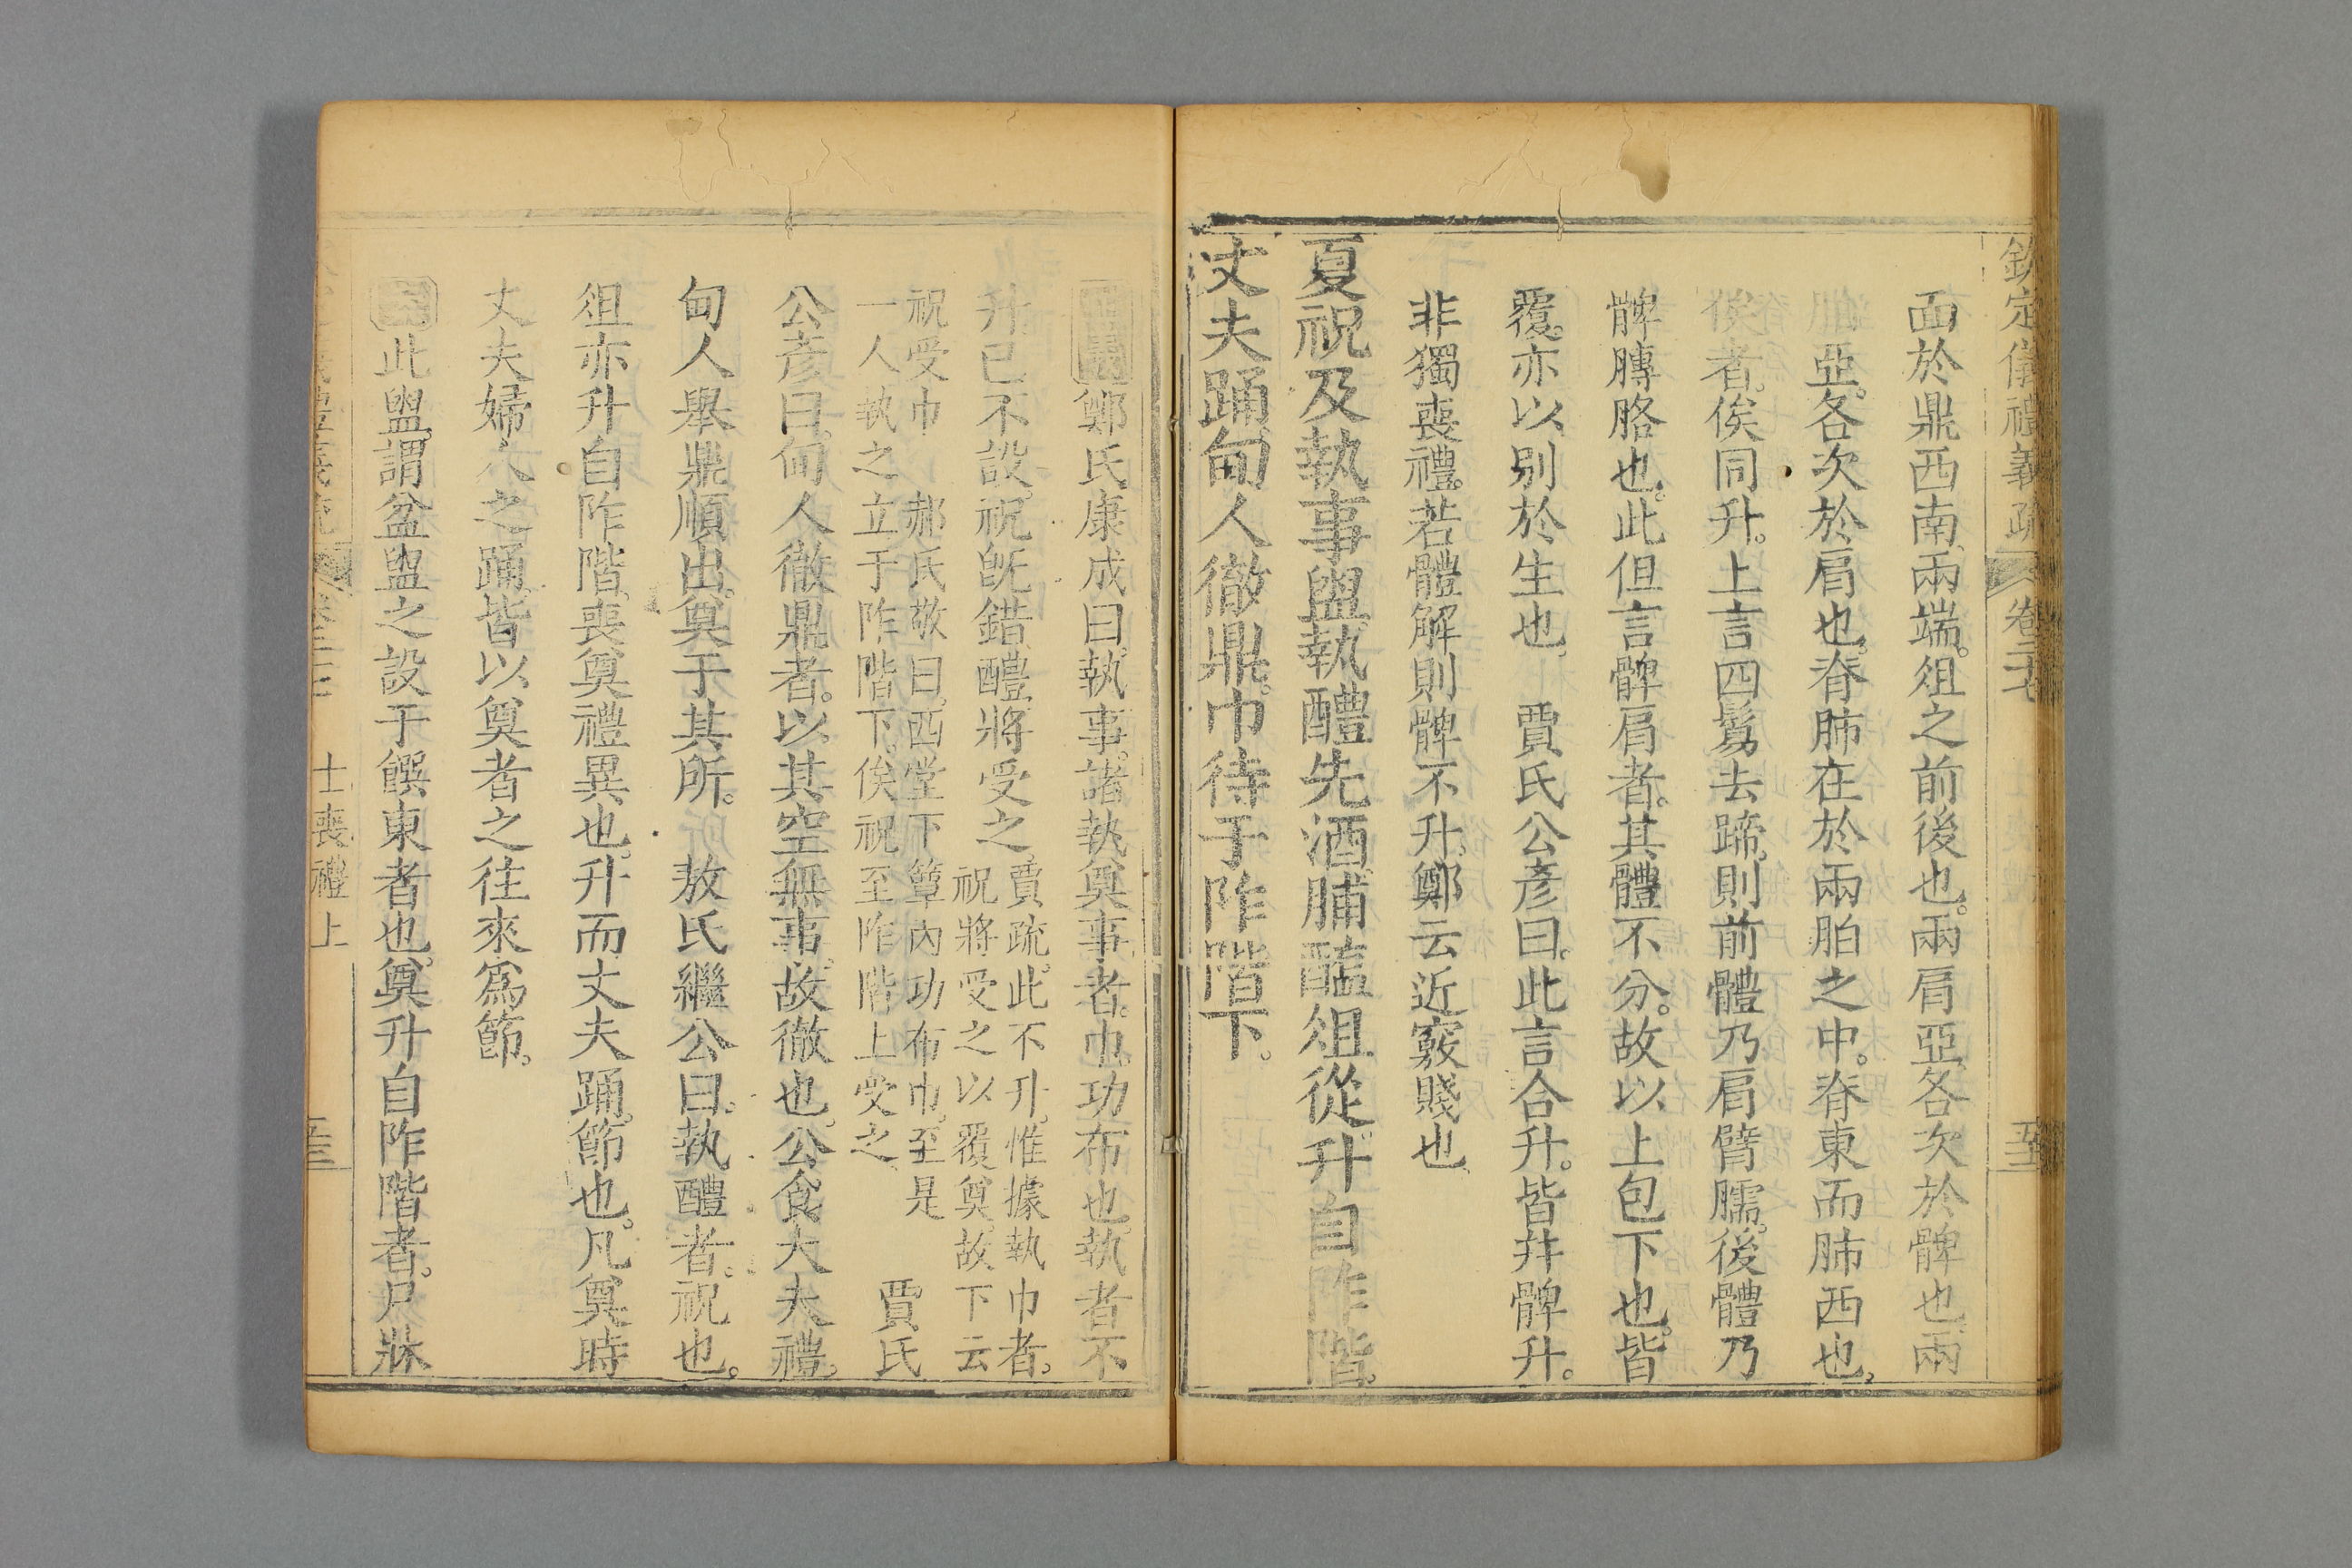 欽定儀禮義疏 卷二十七
面於鼎西南、兩端。俎之前後也。兩肩亞、各次於髀也、兩
胉亞。各次於肩也。脊肺在於兩胉之中。脊東而肺西也。
俟者。俟同升。上言四鬄去蹄。則前體乃肩臂臑。後體乃
髀膞胳也。此但言髀肩者。其體不分。故以上包下也。皆
覆。亦以别於生也 賈氏公彥曰。此言合升。皆幷髀升。
非獨喪禮。若體解則髀不升。鄭云近竅賤也
夏祝及執事盥。執醴先酒。脯醢俎從。升自阼階。
丈夫踊。甸人徹鼎。巾待于阼階下。
鄭氏康成曰。執事。諸執奠事者。巾。功布也。執者不
升。已不設。祝旣錯醴。將受之
賈疏。此不升。惟據執巾者。
祝將受之以覆奠。故下云
祝受巾 郝氏敬曰。西堂下簟內功布巾。至是
一人執之立于阼階下、俟祝至阼階上受之
賈氏
公彥曰。甸人徹鼎者。以其空無事。故徹也。公食大夫禮。
甸人舉鼎順出。奠于其所。 敖氏繼公曰。執醴者。祝也。
俎亦升自阼階。喪奠禮異也。升而丈夫踊。節也。凡奠時
丈夫婦人之踊。皆以奠者之往來爲節。
此盥。謂盆盥之設于饌東者也。奠升自阼階者。尸牀
士喪禮上